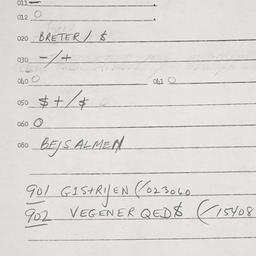 011 —
012 O
020 BRETER / $
030 -/+
040 O 041 O
050 $+/$
060 O
080 BEJSALMEN
901 GISTRIJEN (/023060
902 VEGENER QED$ (/15408